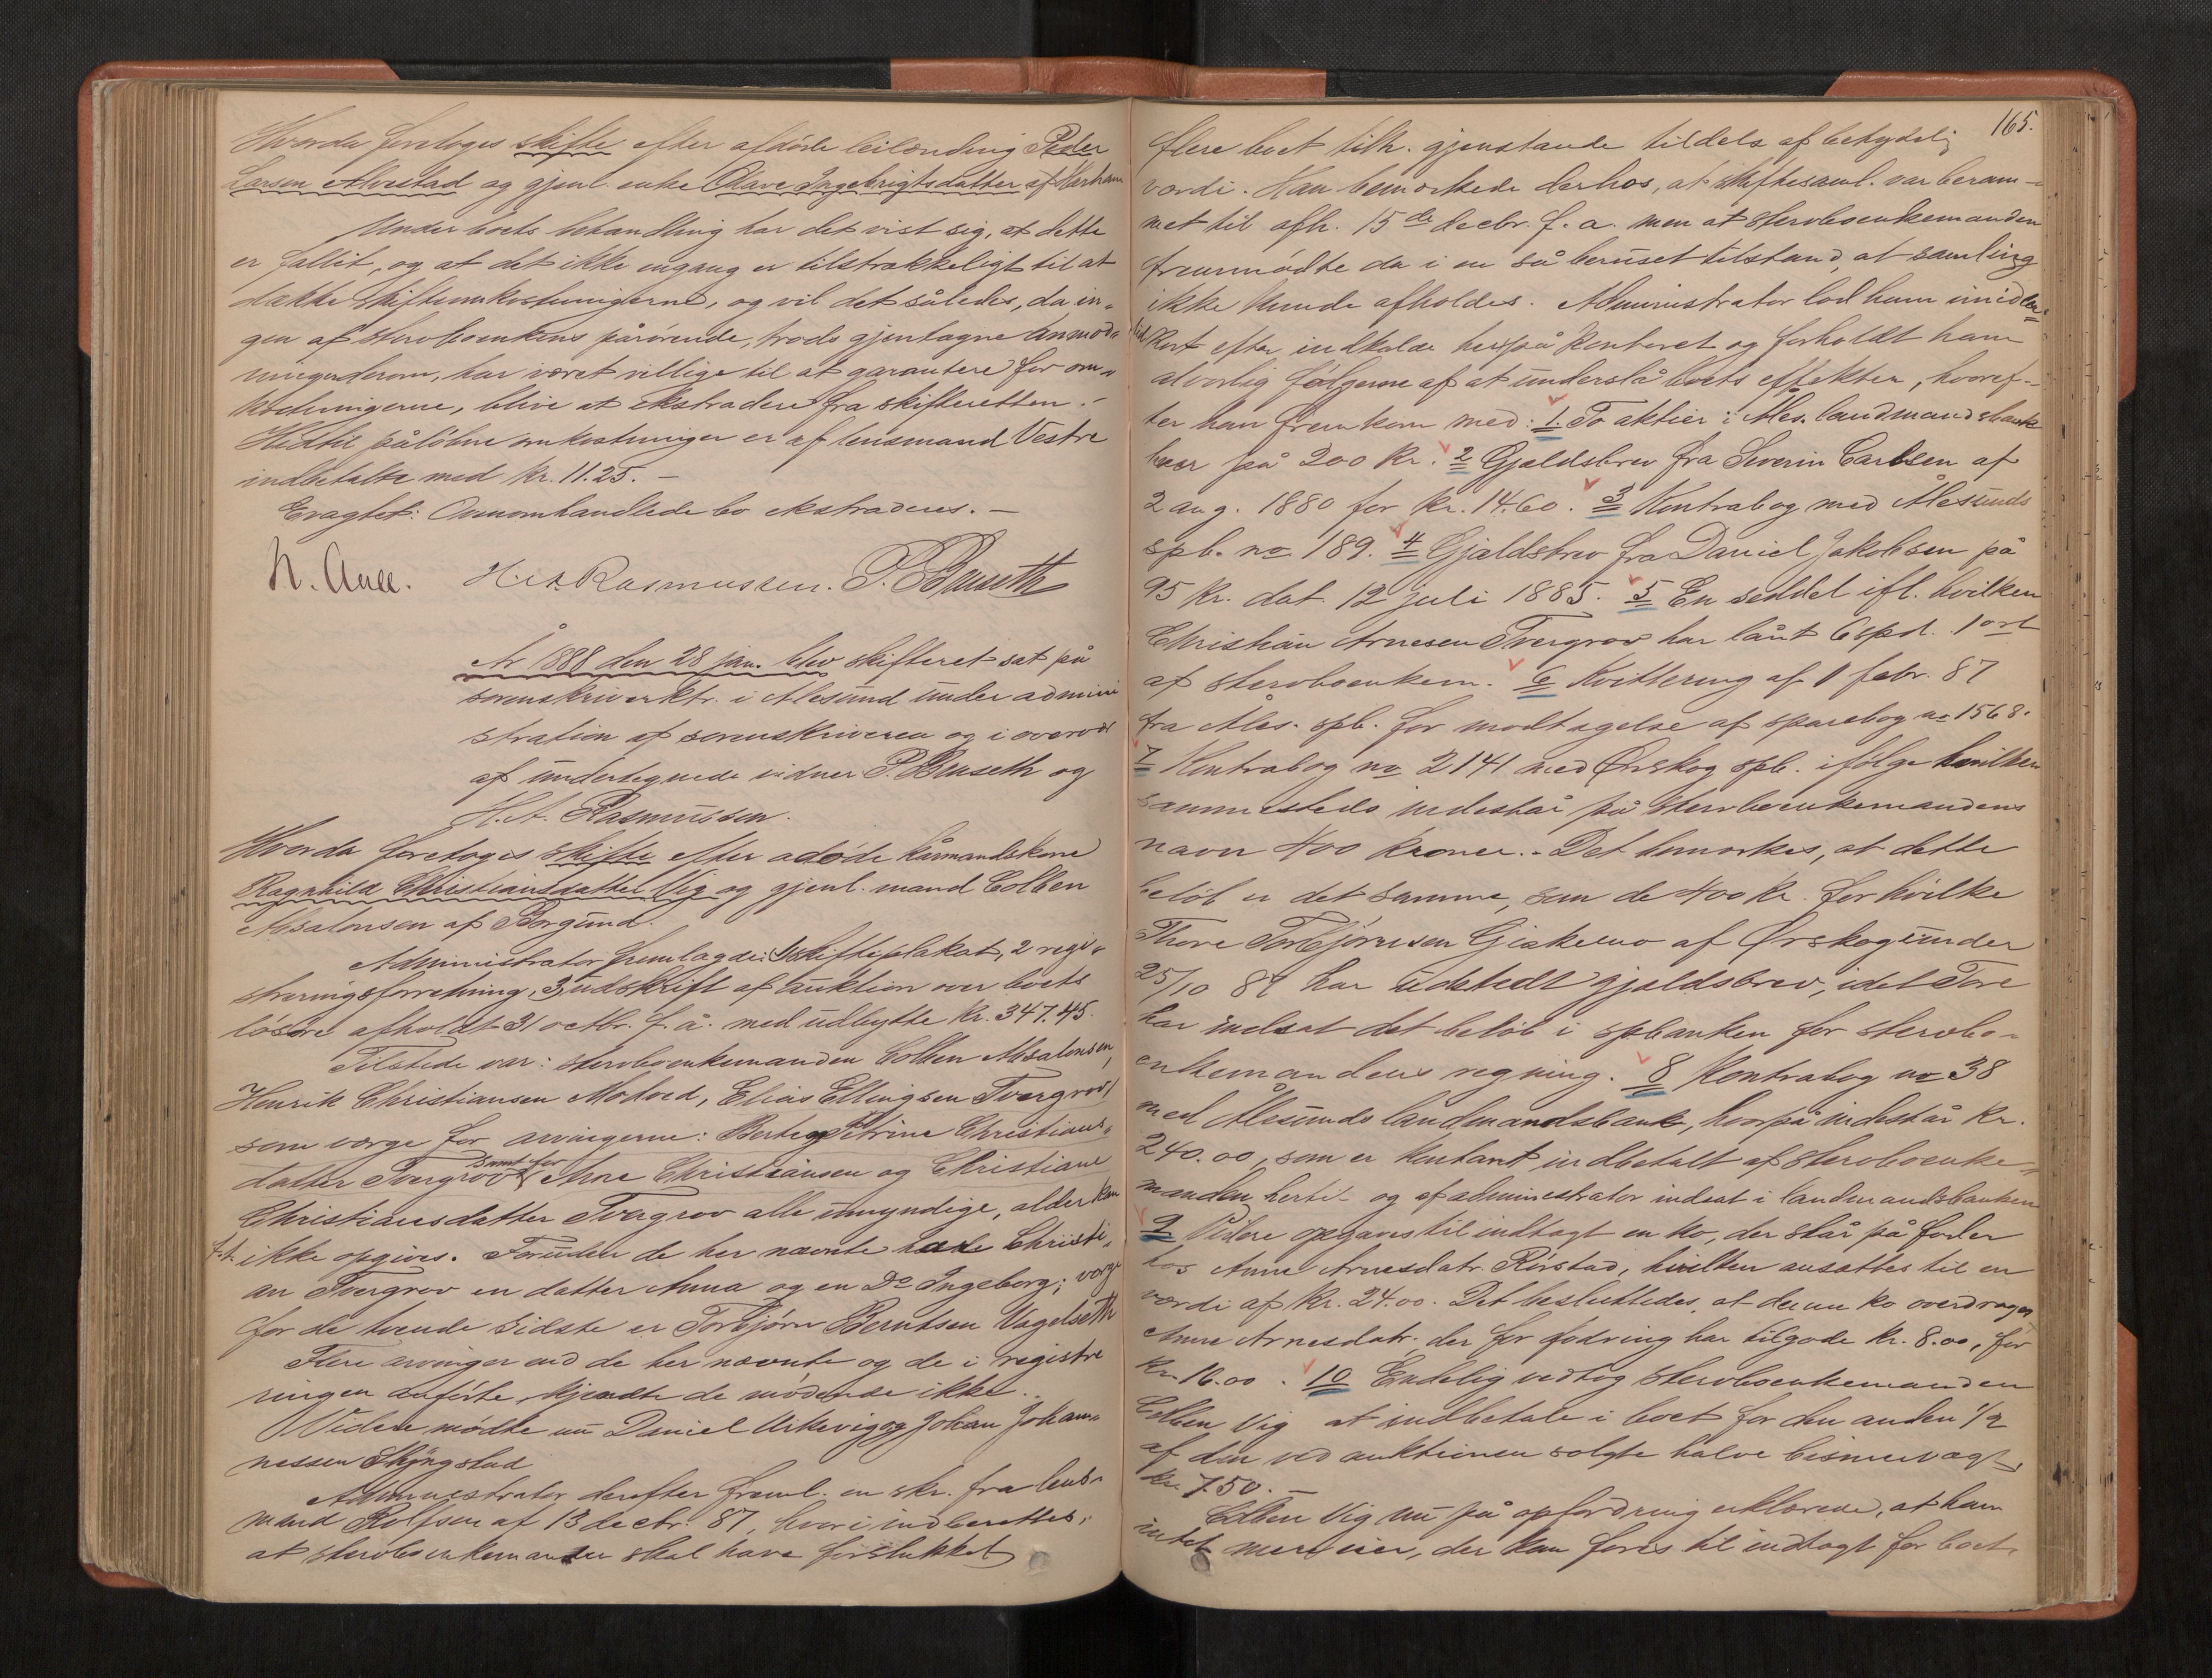 Hvorda foretoges skifte efter afdöde leilænding Peder
Larsen Alvestad og gjenl. enke Olave Ingebrigtsdatter af Harham
Under boets behandling har det vist sig, at dette
er fallit, og at det ikke engang er tilstrækkeligt til at
dække skifteomkostningerne, og vil det således, da in-
gen af stervboenkens pårörende, trods gjentagne anmod-
ninger derom, har været villige til at garantere for om-
kostningerne, blive at ekstradere fra skifteretten.-
Hidtil pålöbne omkostninger er af lensmand Vestre
indbetalte med kr. 11.25. -
Eragtet: Ommhandlede bo ekstraderes. -
N. Aall. H. A. Rasmussen. P. Bruseth
År 1888 den 28 jan. blev skifteret sat på
sorenskriverktr. i Ålesund under admini
stration af sorenskriveren og i overvær
af undertegnede vidner P. Bruseth og
H. A. Rasmussen.
Hvorda foretoges skifte efter adöde kårmandskone
Ragnhild Christiansdatter Vig og gjenl. mand Colben
Absalonsen af Borgund.
Administrator fremlagde: 1 skifteplakat, 2 regi-
streringsforretning, 3, udskrift af auktion over boets
lösöre afholdt 31 octbr. f. å. med udbytte kr. 347.45.
Tilstede var: stervboenkemanden Colben Absalonsen,
Henrik Christiansen Molvær, Elias Ellingsen Tvergrov,
som værge for arvingerne: Berte Petrine Christians-
datter Tvergrov samt for Arne Christiansen og Christiane
Christiansdatter Tvergrov alle umyndige, alder kan
f.t. ikke opgives. Foruden de her nævnte havde Christi-
an Tvergrov en datter Anna og en Do Ingeborg; værge
for de tvende sidste er Torbjörn Berntsen Vagelseth
Flere arvinger end de her nævnte og de i registre
ringen anförte kjendte de mödende ikke.
Videre mödte nu Daniel Urkevig og Johan Johan-
nessen Skyngstad
Administrator derefter freml. en skr. fra lens-
mand Rolfsen af 13 decbr. 87, hvori indberettes,
at stervboenkemanden skal have forstukket
165.
flere boet tilh. gjenstande tildels af betydelig
værdi. Han bemærkede derhos, at skiftesaml. var beram-
met til afh. 15de decbr. f. a. men at stervboenkemanden
fremmödte da i en så beruset tilstand, at samling
ikke kunde afholdes. Administrator lod ham imidler-
tid kort efter indkalde her på kontoret og forholdt ham
alvorlig fölgerne af at underslå boets effekter, hvoref-
ter han fremkom med: 1. To aktier i Ales. landmandsbank
hver på 200 kr. 2 Gjældsbrev fra Severin Carlsen af
2 aug. 1880 for kr. 14.60. 3 Kontrabog med Ålesunds
spb. no 189. 4 Gjældsbrev fra Daniel Jakobsen på
95 kr. dat. 12 juli 1885. 5 En seddel ifl. hvilken
Christian Arnesen Tvergrov har lånt 6 spd. 1 ort
af stervboenkem. 6 Kvittering af 1 febr. 87
fra Ales. spb. for modtagelse af sparebog no 1568.
7 Kontrabog no 2141 med Örskog spb. ifölge hvilken
sammesteds indestår på stervboenkemandens
navn 400 kroner. - Det bemærkes, at dette
belöb er det samme, som de 400 kr. for hvilke
Thore Torbjörnsen Giskemo af Örskog under
25/10 87 har udstedt gjældsbrev, idet Tore
har indsat det belöb i spbanken for stervbo-
enkemandens regning. 8 Kontrabog no 38
med Ålesunds landmandsbank, hvorpå indestår kr.
240.00, som er kontant indbetalt af stervboenke-
manden hertil og af administrator indsat i landmandsbanken
9 Videre opgaves til indtægt en ko, der står på foder
hos Anne Arnesdatr. Rörstad, hvilken ansattes til en
værdi af kr. 24.00. Det besluttedes, at denne ko overdrages
Anne Arnesdatr. der for fodring har tilgode kr. 8.00, for
kr. 16.00. 10 Endelig vedtog stervboenkemanden
Colben Vig at indbetale i boet for den anden 1/2
af den ved auktionen solgte halve bismervægt,
kr. 7.50. -
Colben Vig nu på opfordring erklærede, at han
intet mere eier, der kan föres til indtægt for boet.